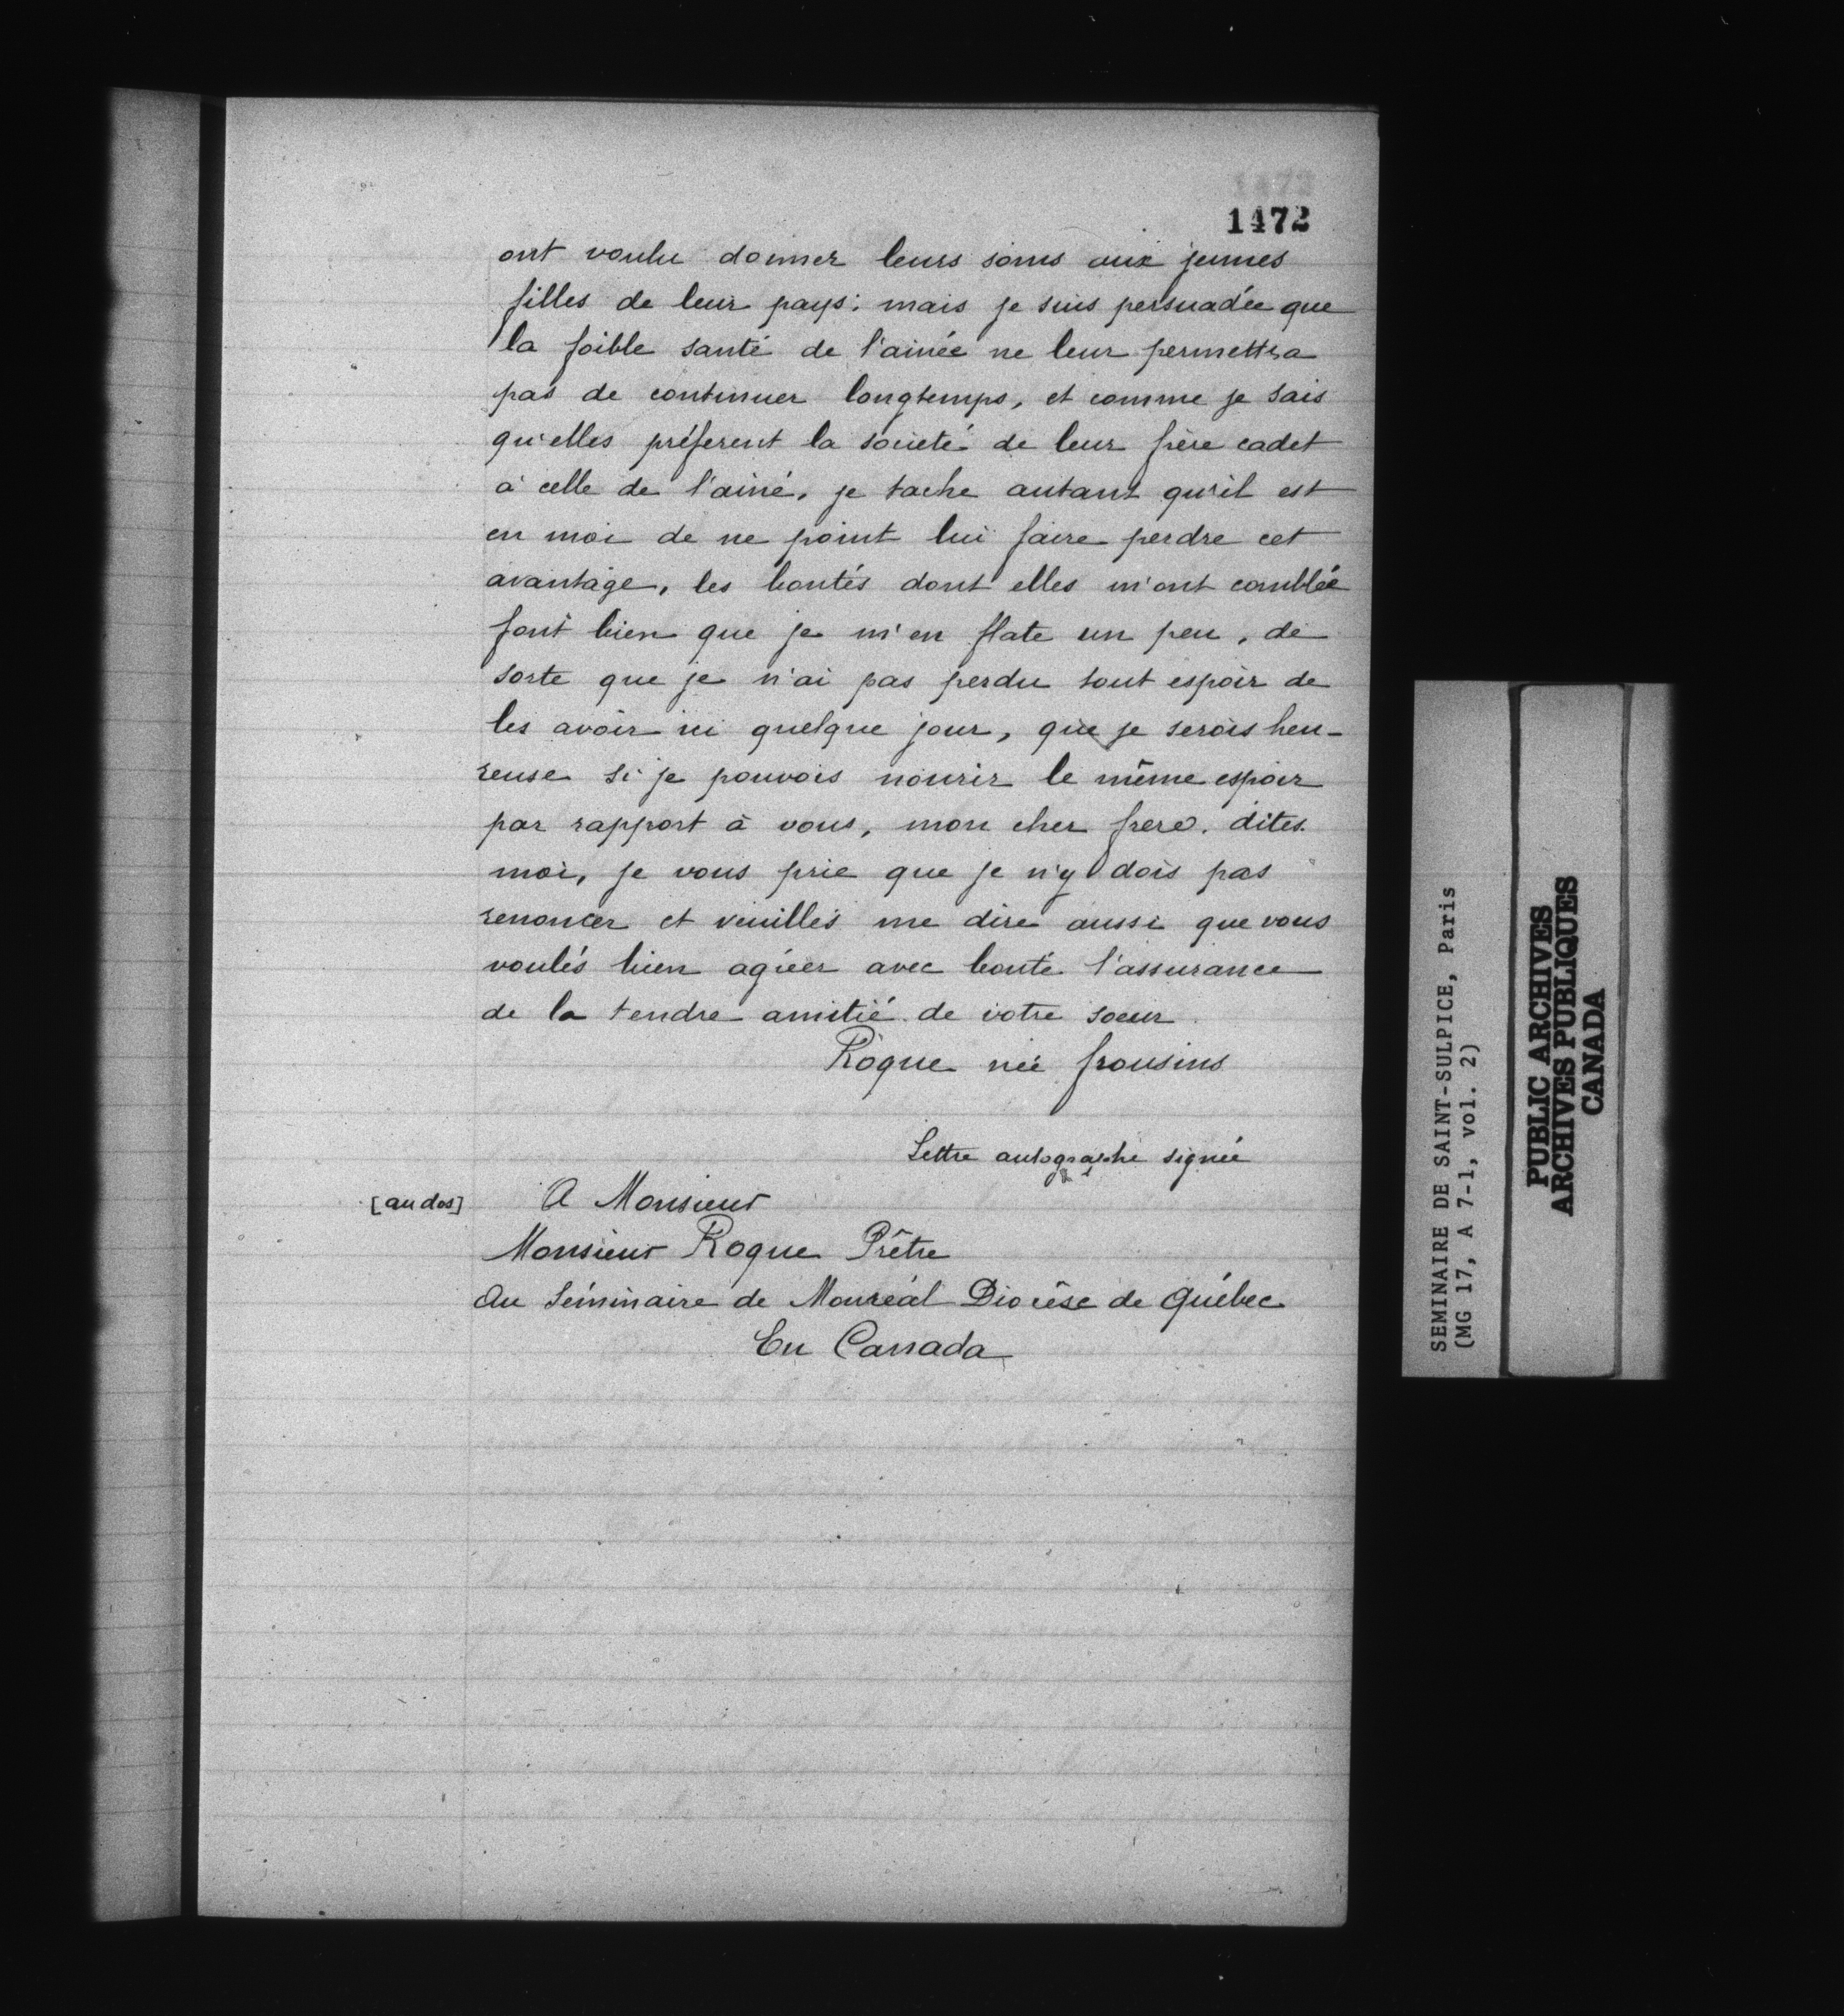 1472
1472
ont voulu donner leurs soins aux jeunes
filles de leur pays: mais je suis persuadée que
la foible santé de l'ainée ne leur permettra
pas de continuer longtemps, et comme je sais
qu'elles préferent la societé de leur frère cadet
à celle de l'ainé, je tache autant qu'il est
en moi de ne point lui faire perdre cet
avantage, les bontés dont elles m'ont comblée
font bien que je m'en flate un peu, de
sorte que je n'ai pas perdu tout espoir de
les avoir ici quelque jour, que je serois heu-
reuse si je pouvois nourir le même espoir
par rapport à vous, mon cher frere. dites
moi, je vous prie que je n'y dois pas
renoncer et veuillés me dire aussi que vous
voulés bien agréer avec bonté l'assurance
de la tendre amitié de votre soeur.
Roque née frousins
Lettre autographe signée
[au dos] A Monsieur
Monsieur Roque Prêtre
Au Séminaire de Monréal Diocèse de Québec
En Canada
SEMINAIRE DE SAINT-SULPICE, Paris
(MG 17, A 7-1, vol. 2)
PUBLIC ARCHIVES
ARCHIVES PUBLIQUES
CANADA